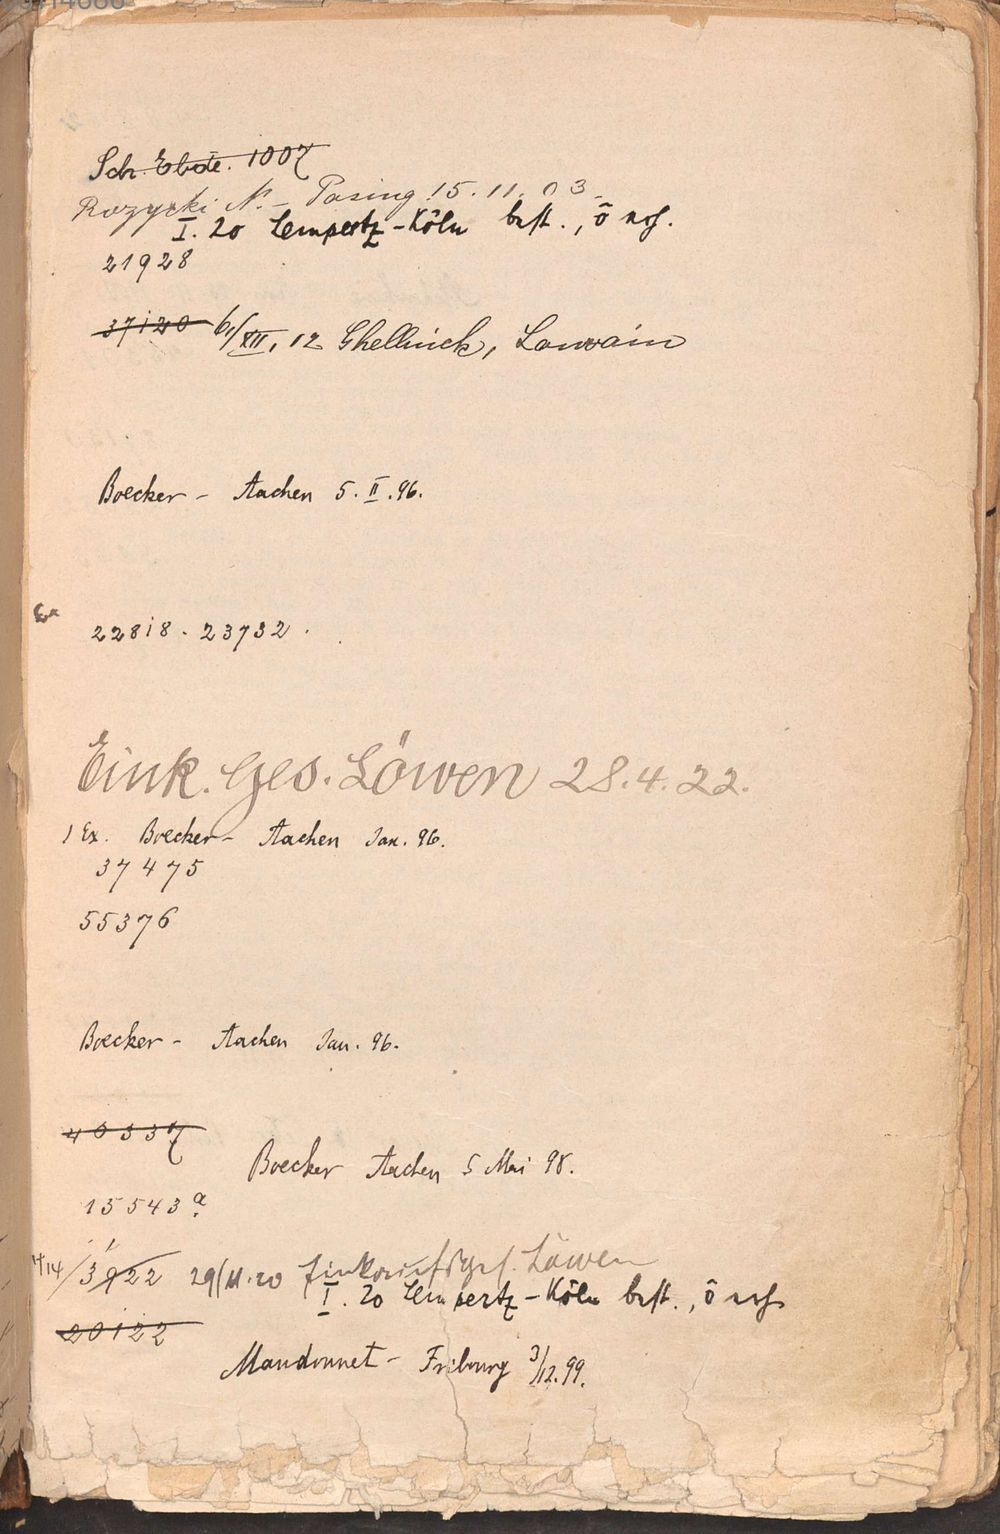 Sch. Ebde. 1007
Rozycki N. - Pasing 15. 11. 03.
I. 20 Lempertz - Köln best., ō
21928
37120 6/XII, 12 Ghellinck, Louvain
Boecker - Aachen 5. II. 96.
Ex
22818. 23732.
Eink. Ges. Löwen 28.4.22.
1 Ex. Boecker - Aachen Jan. 96.
37475
55376
Boecker - Aachen Jan. 96.
40337
Boecker Aachen 5 Mai 98.
15543 a.
3922 29/11.20 Einkaufsges. Löwen
I. 20 Lempertz - Köln best., ō
20122
Mandonnet - Fribourg 3/12.99.